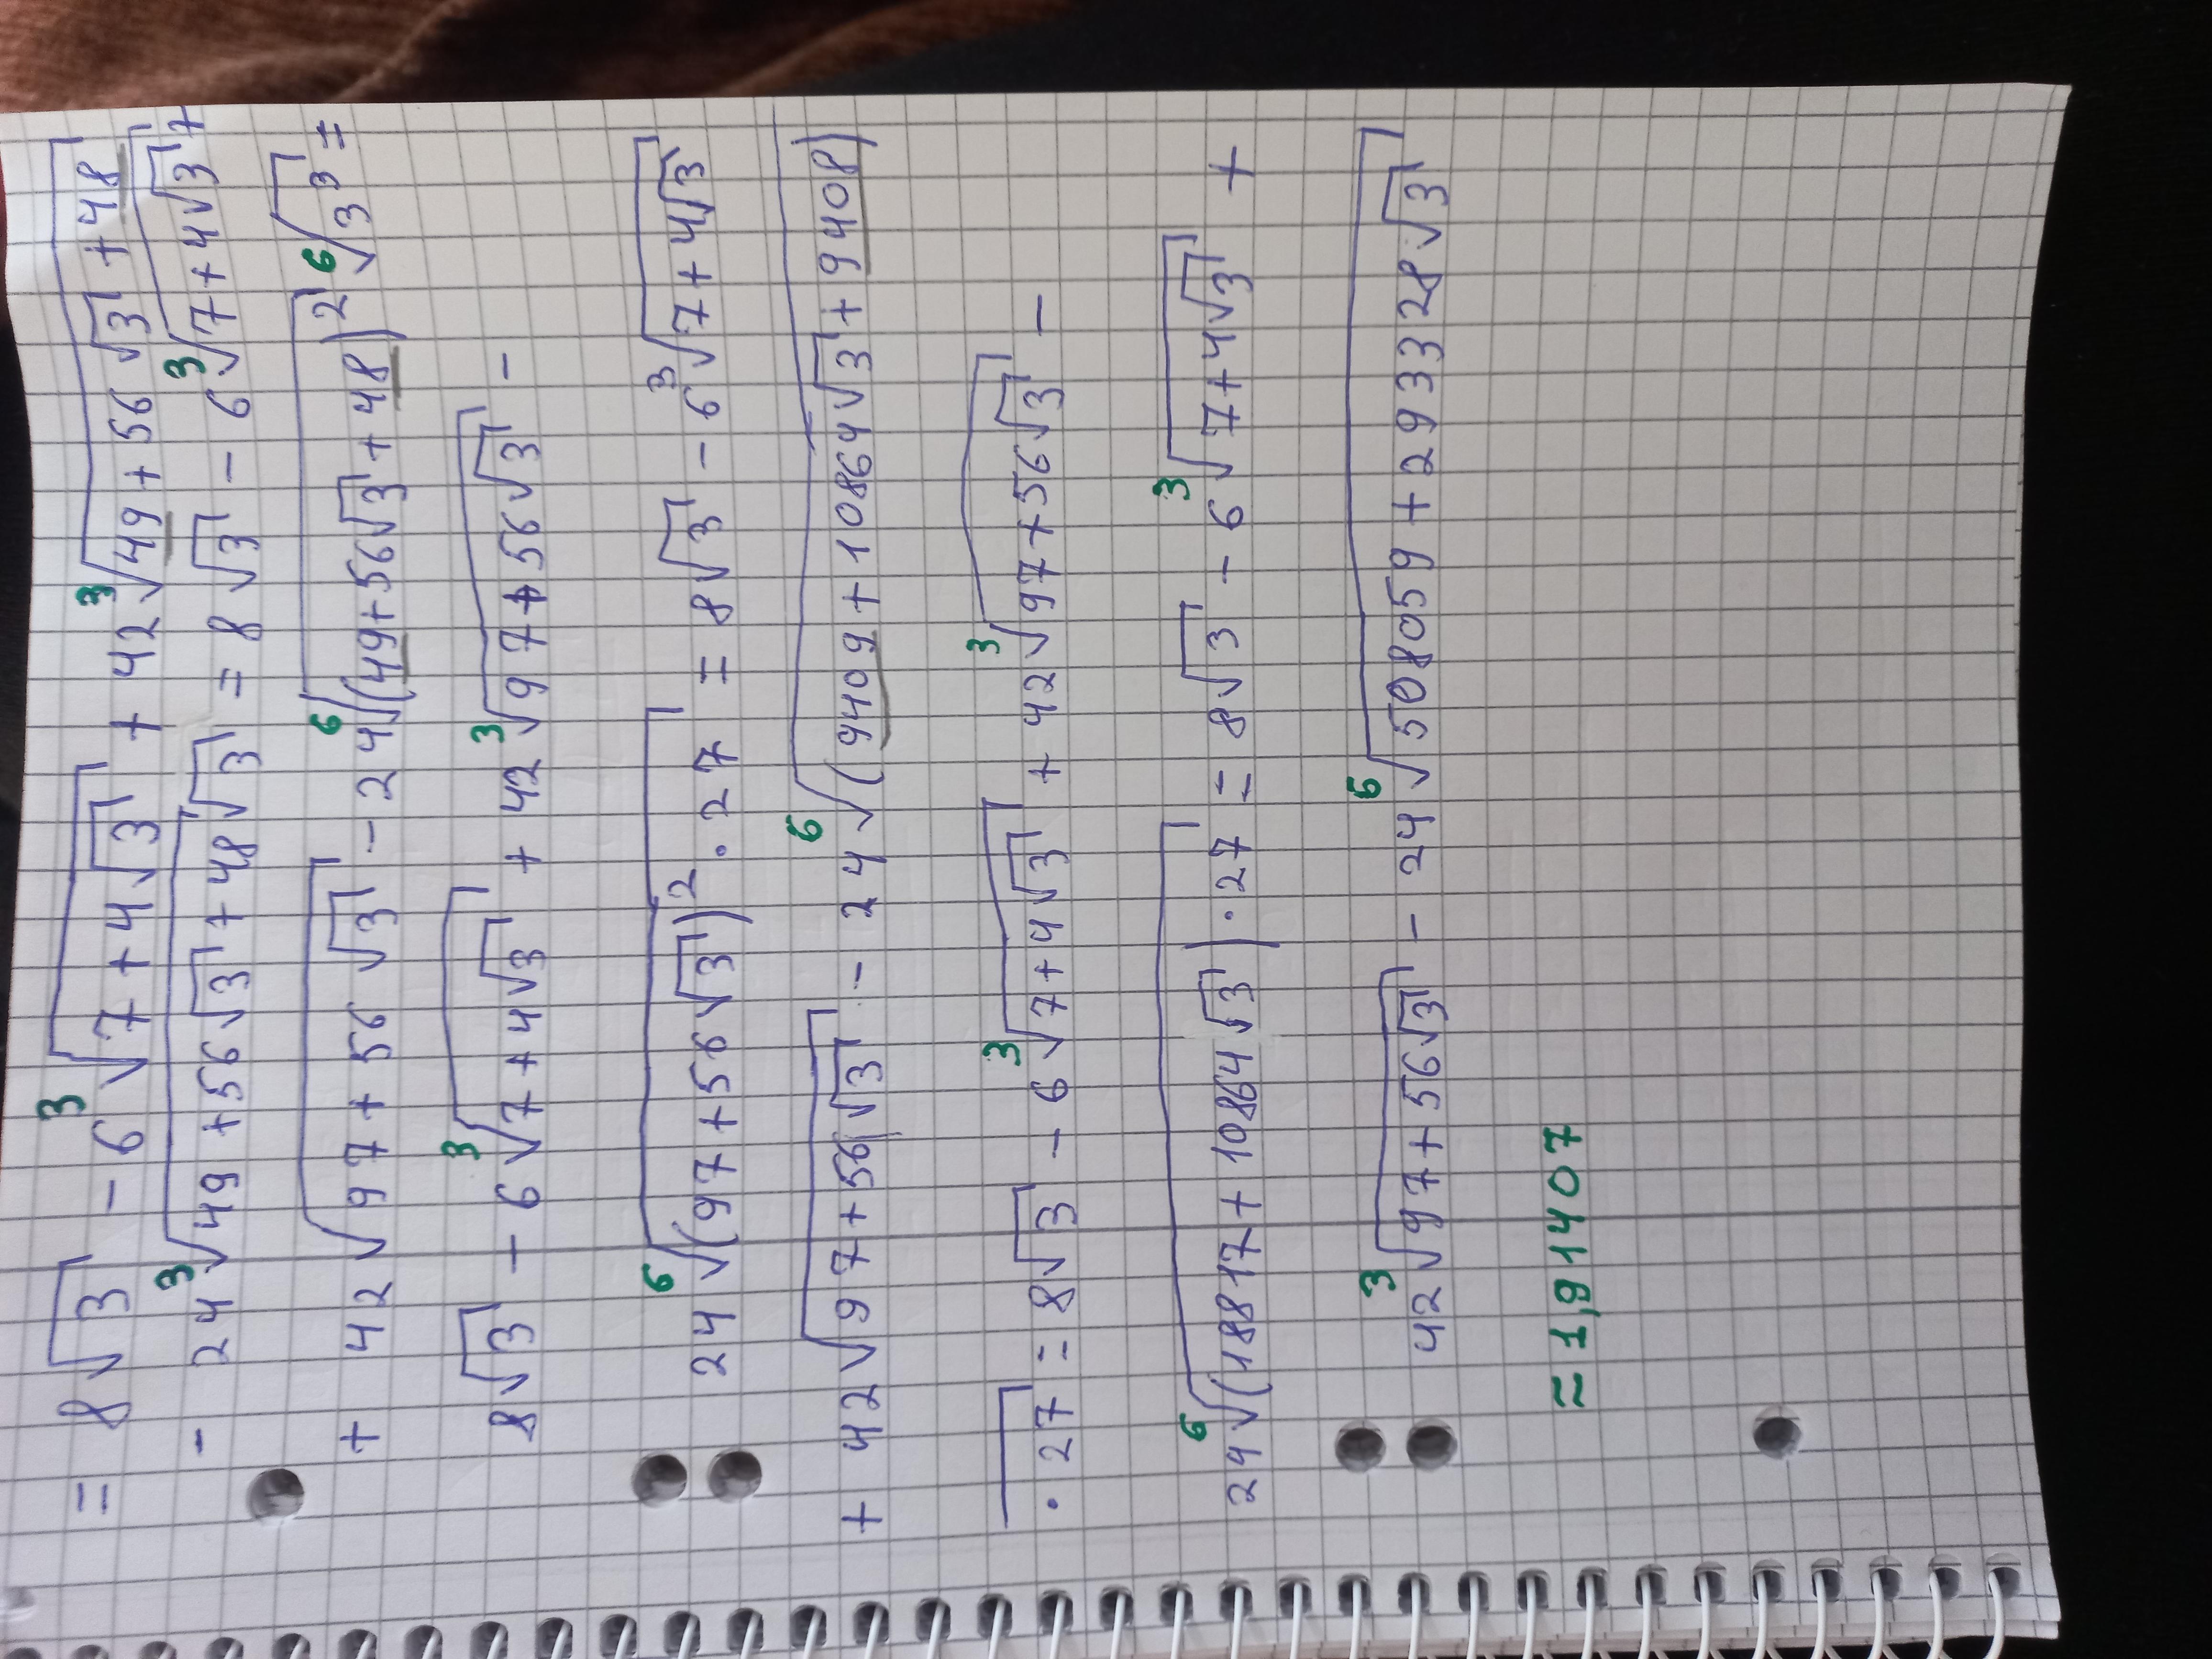 = 8√3 - 6∛(7 + 4√3) + 42∛(49 + 56√3 + 48)
- 24∛(49 + 56√3 + 48√3) = 8√3 - 6∛(7 + 4√3)
+ 42√(97 + 56√3) - 24⁶√((49 + 56√3 + 48)²) ⁶√(3³) =
8√3 - 6∛(7 + 4√3) + 42∛(97 + 56√3) -
24⁶√((97 + 56√3)² · 27) = 8√3 - 6∛(7 + 4√3)
+ 42√(97 + 56√3) - 24⁶√((9409 + 10864√3 + 9408)
· 27) = 8√3 - 6∛(7 + 4√3) + 42∛(97 + 56√3) -
24⁶√((18817 + 10864√3) · 27) = 8√3 - 6∛(7 + 4√3) +
42∛(97 + 56√3) - 24⁶√(508059 + 293328√3)
≈ 1,91407